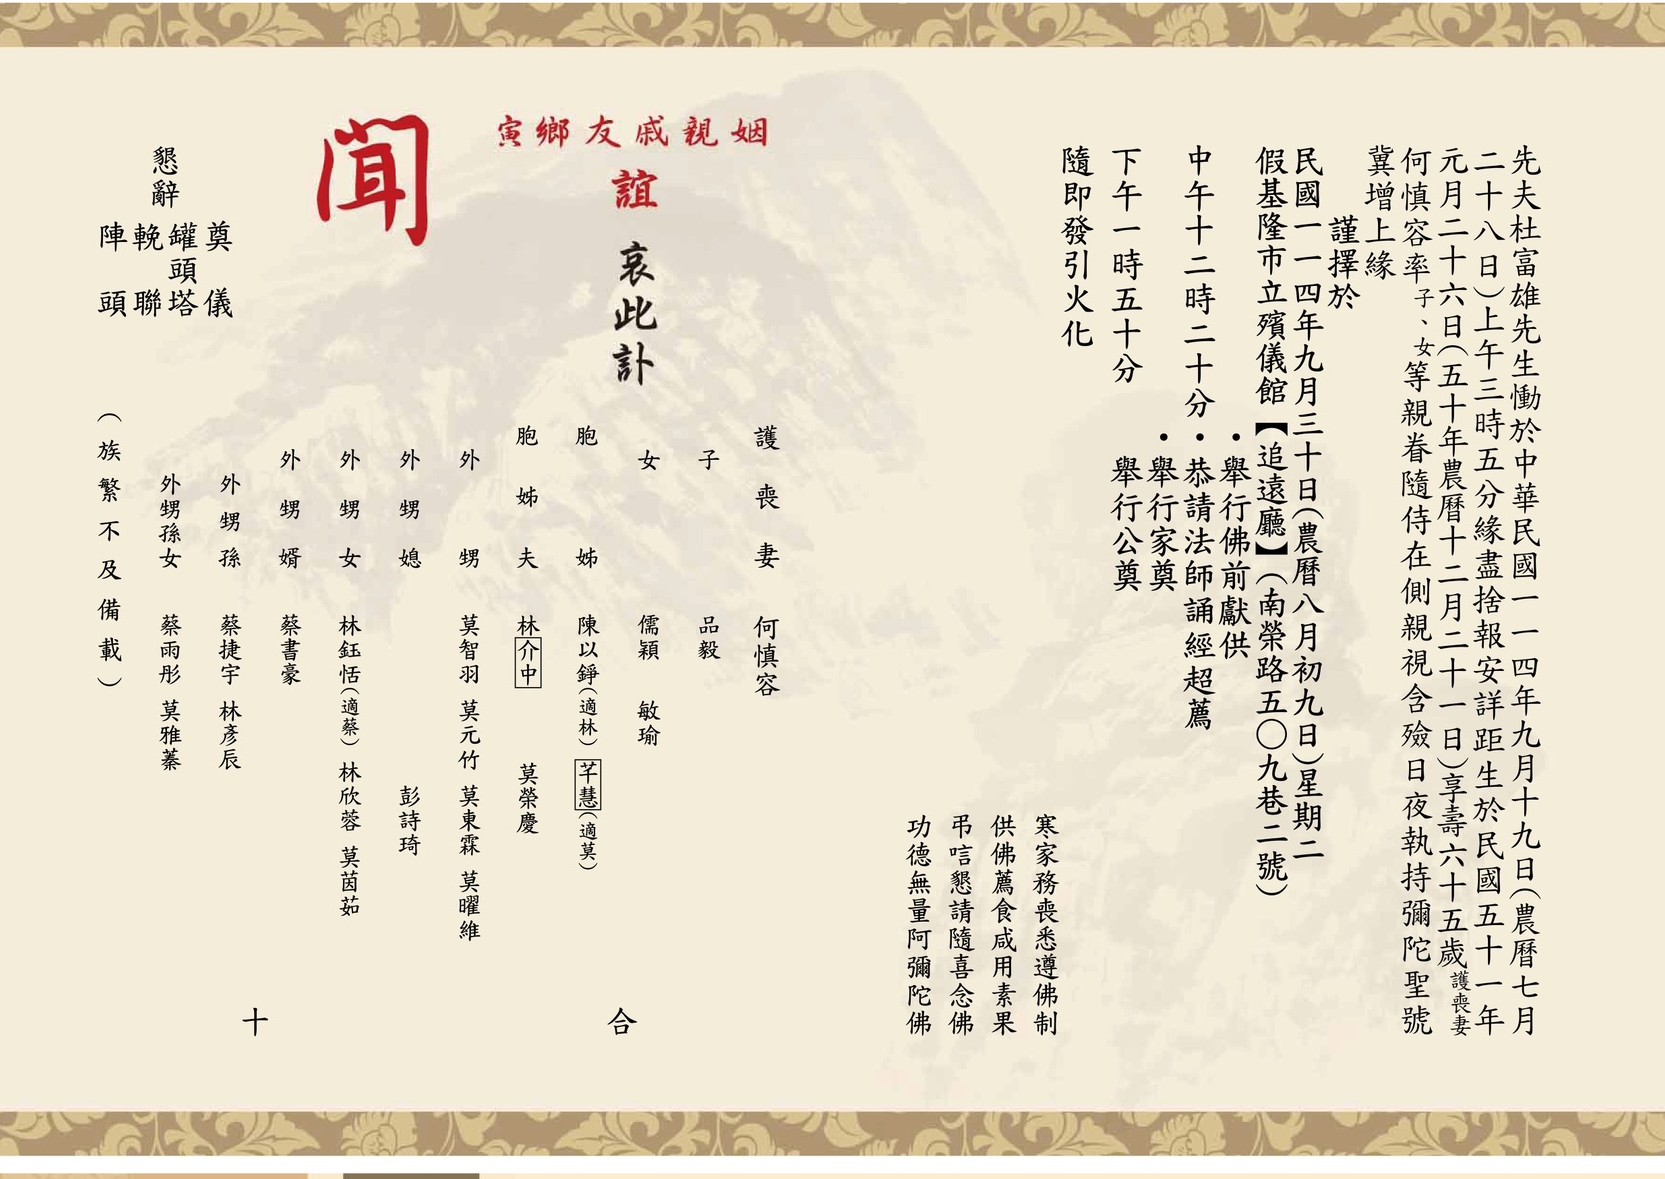 先夫杜富雄先生慟於中華民國一一四年九月十九日(農曆七月
二十八日)上午三時五分緣盡捨報安詳距生於民國五十一年
元月二十六日(五十年農曆十二月二十一日)享壽六十五歲護喪妻
何慎容率子、女等親眷隨侍在側親視含殮日夜執持彌陀聖號
冀增上緣
謹擇於
民國一一四年九月三十日(農曆八月初九日)星期二
假基隆市立殯儀館【追遠廳】(南榮路五〇九巷二號)
•舉行佛前獻供
中午十二時二十分•恭請法師誦經超薦
•舉行家奠
下午一時五十分 舉行公奠
隨即發引火化
寒家務喪悉遵佛制
供佛薦食咸用素果
弔唁懇請隨喜念佛
功德無量阿彌陀佛
姻親戚友鄉寅
誼
哀此訃
聞
護喪妻 何慎容
子 品毅
女 儒穎 敏瑜
胞姊 陳以錚(適林) 芊慧(適莫)
胞姊夫 林介中 莫榮慶
外甥 莫智羽 莫元竹 莫東霖 莫曜維
外甥媳 彭詩琦
外甥女 林鈺恬(適蔡) 林欣蓉 莫茵茹
外甥婿 蔡書豪
外甥孫 蔡捷宇 林彥辰
外甥孫女 蔡雨彤 莫雅蓁
(族繁不及備載)
合十
懇辭
奠儀
罐頭塔
輓聯
陣頭